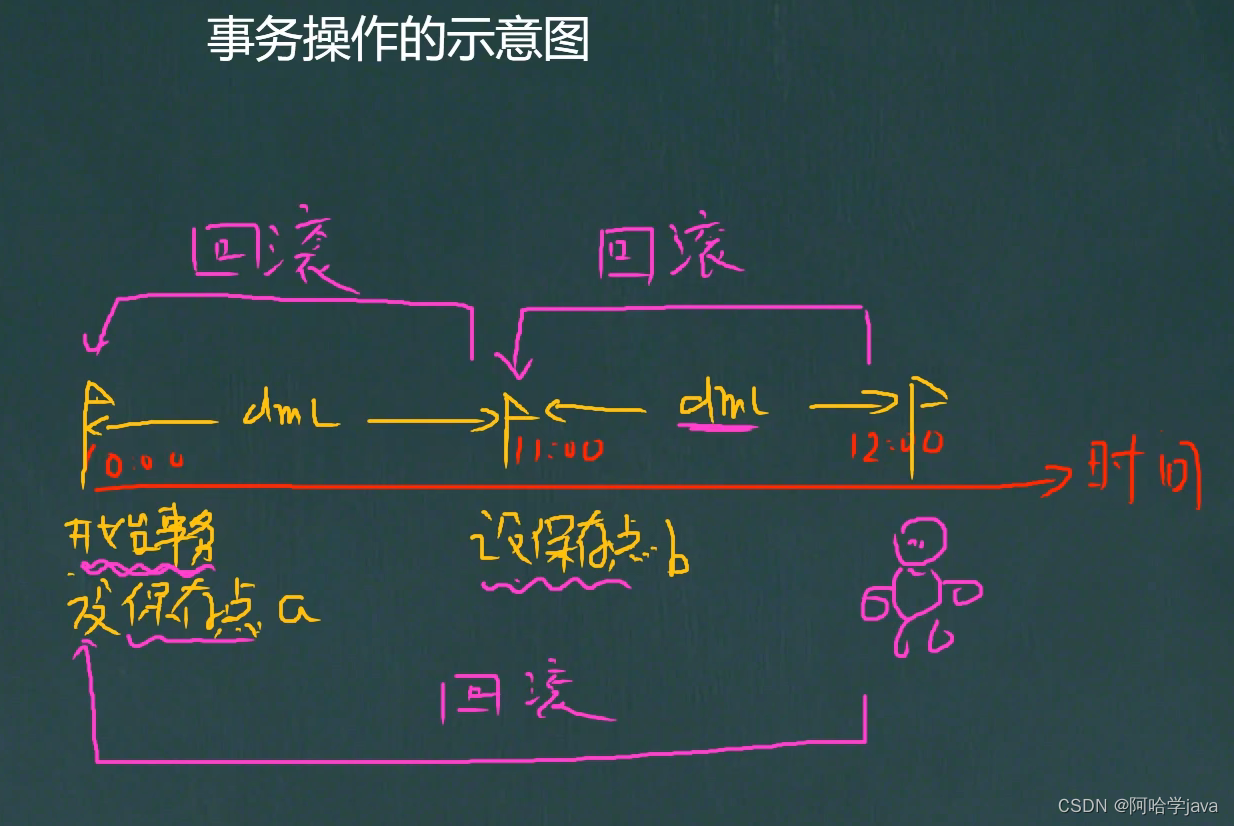 事务操作的示意图
回滚 回滚
dmL dmL
10:00 11:00 12:00 时间
开始事务 设保存点 b
设保存点 a
回滚
CSDN @阿哈学java